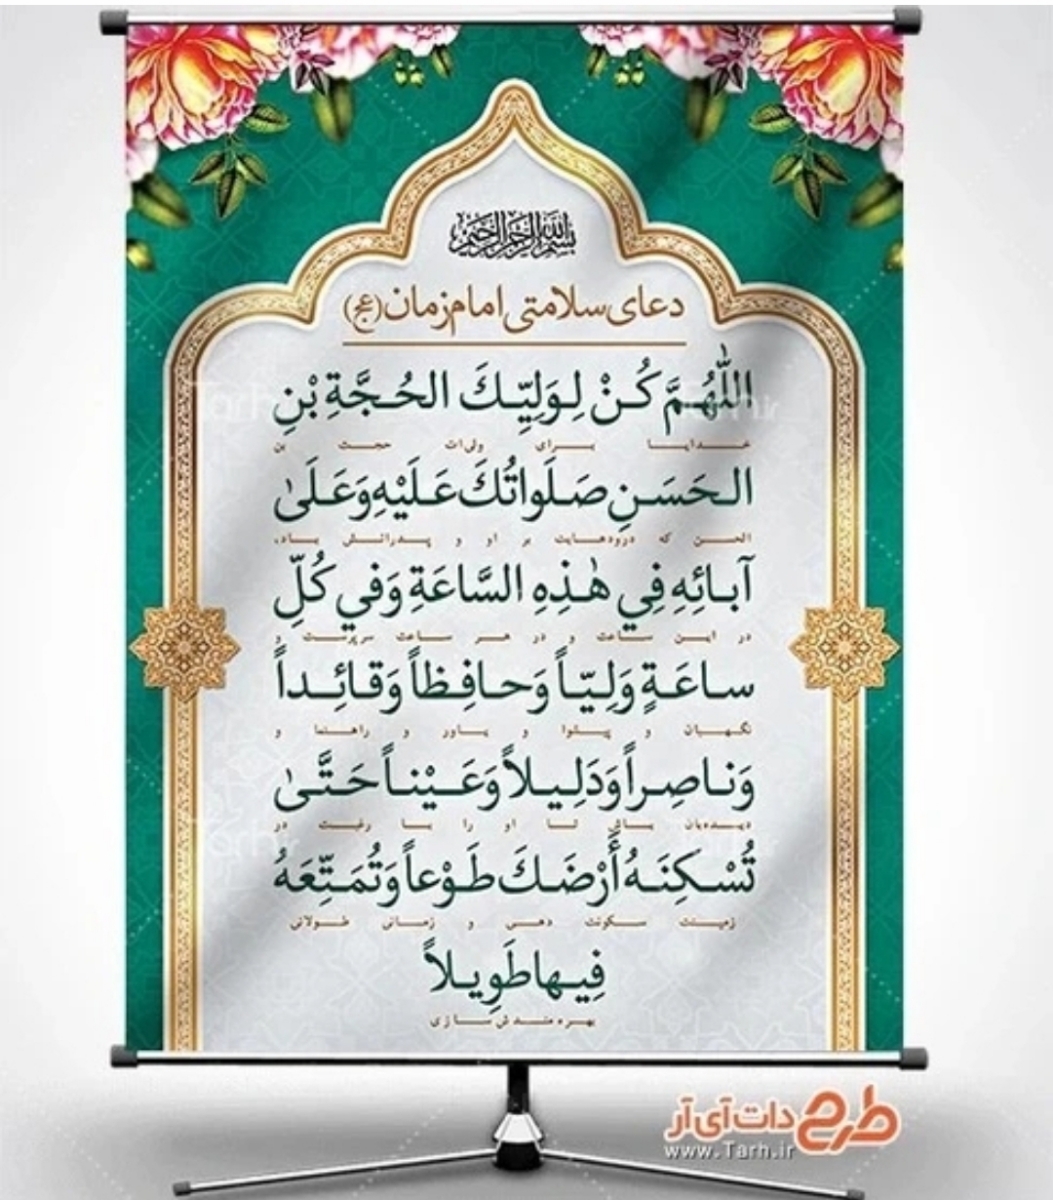 بسم الله الرحمن الرحیم
دعای سلامتی امام زمان (عج)
اللّٰهُمَّ كُنْ لِوَلِيِّكَ الحُجَّةِ بْنِ
خدایا برای ولی‌ات حجت بن
الحَسَنِ صَلَواتُكَ عَلَيْهِ وَعَلَىٰ
الحسن که درودهایت بر او و پدرانش باد،
آبائِهِ فِي هٰذِهِ السَّاعَةِ وَفي كُلِّ
در این ساعت و در هر ساعت سرپرست و
ساعَةٍ وَلِيّاً وَحافِظاً وَقائِداً
نگهبان و پیشوا و یاور و راهنما و
وَناصِراً وَدَلِيلاً وَعَيْناً حَتَّىٰ
دیده‌بان باش تا او را با رغبت در
تُسْكِنَهُ أَرْضَكَ طَوْعاً وَتُمَتِّعَهُ
زمینت سکونت دهی و زمانی طولانی
فِيها طَوِيلاً
بهره مندش سازی
طرح دات آی آر
www.Tarh.ir